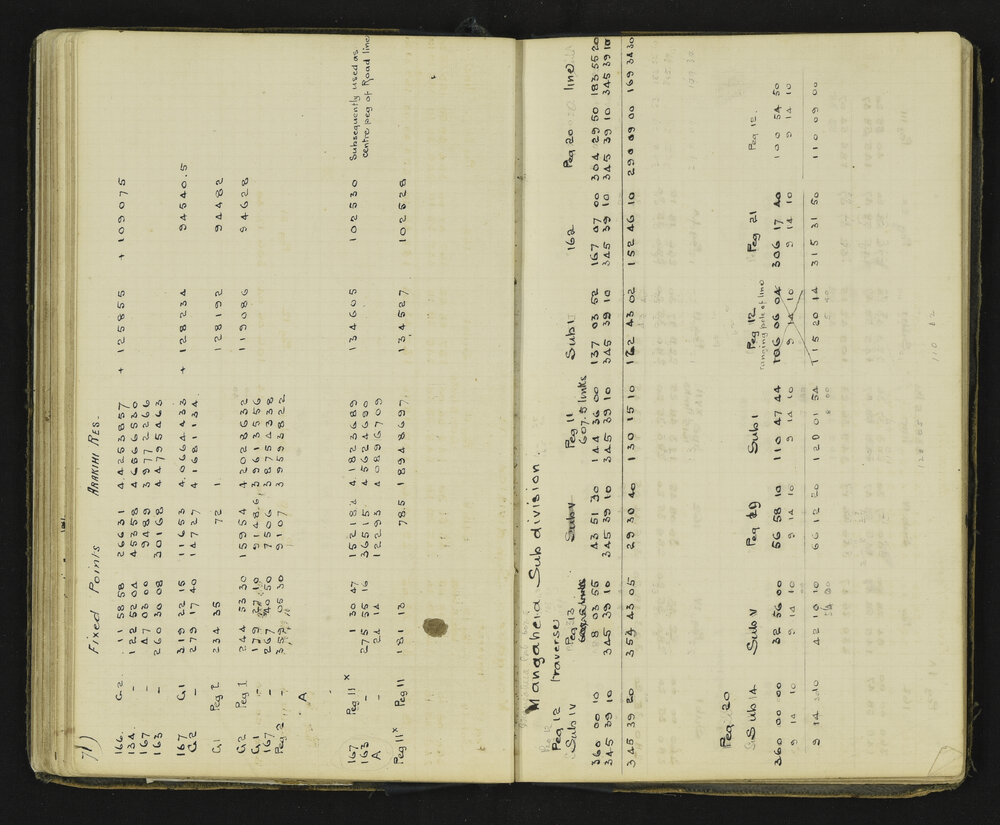 71) Fixed Points ARAKIHI RES.
166. G.2 11 58 58 26631 4.4253857 + 125855 + 109075
134 - 122 52 04 45358 4.6566530
167 - 47 03 00 9489 3.9772266
163 - 260 30 08 30168 4.4795463
167 G.1 319 22 15 11653 4.0664433 + 128234 94540.5
G.2 - 279 17 40 14727 4.1681134
G.1 Peg 2 234 35 72 1 128192 94482
G.2 Peg 1 244 53 30 15954 4.2028632 119086 94628
G.1 - 179 27 10 9148.6 3.9613556
167 - 267 40 50 7506 3.8754338
Peg 2 - 352 05 30 9107 3.9593822
A
167 Peg 11 x 1 30 47 15218.2 4.1823689 134605 102530 Subsequently used as
163 - 25 55 16 36515 4.5624690 centre peg of Road line
A - 24 14 12293 4.0896709
Peg 11 x Peg 11 191 13 78.5 1.8948697 134527 102528
Mangaheia Subdivision
Peg 12 traverse Peg 13 Peg 11
Sub IV Sub V 607.5 links Sub I 162 Peg 20 line
360 00 10 8 03 55 43 51 30 144 36 00 137 03 52 167 07 00 304 29 50 183 55 20
345 39 10 345 39 10 345 39 10 345 39 10 345 39 10 345 39 10 345 39 10 345 39 10
345 39 20 353 43 05 29 30 40 130 15 10 122 43 02 152 46 10 290 09 00 169 34 30
Peg 20
Sub IA Sub V Peg 29 Sub I Peg 12 Peg 21 Peg 12
ranging pole of line
360 00 00 32 56 00 56 58 10 110 47 44 106 06 04 306 17 40 100 54 50
9 14 10 9 14 10 9 14 10 9 14 10 9 14 10 9 14 10 9 14 10
9 14 10 42 10 10 66 12 20 120 01 54 115 20 14 315 31 50 110 09 00